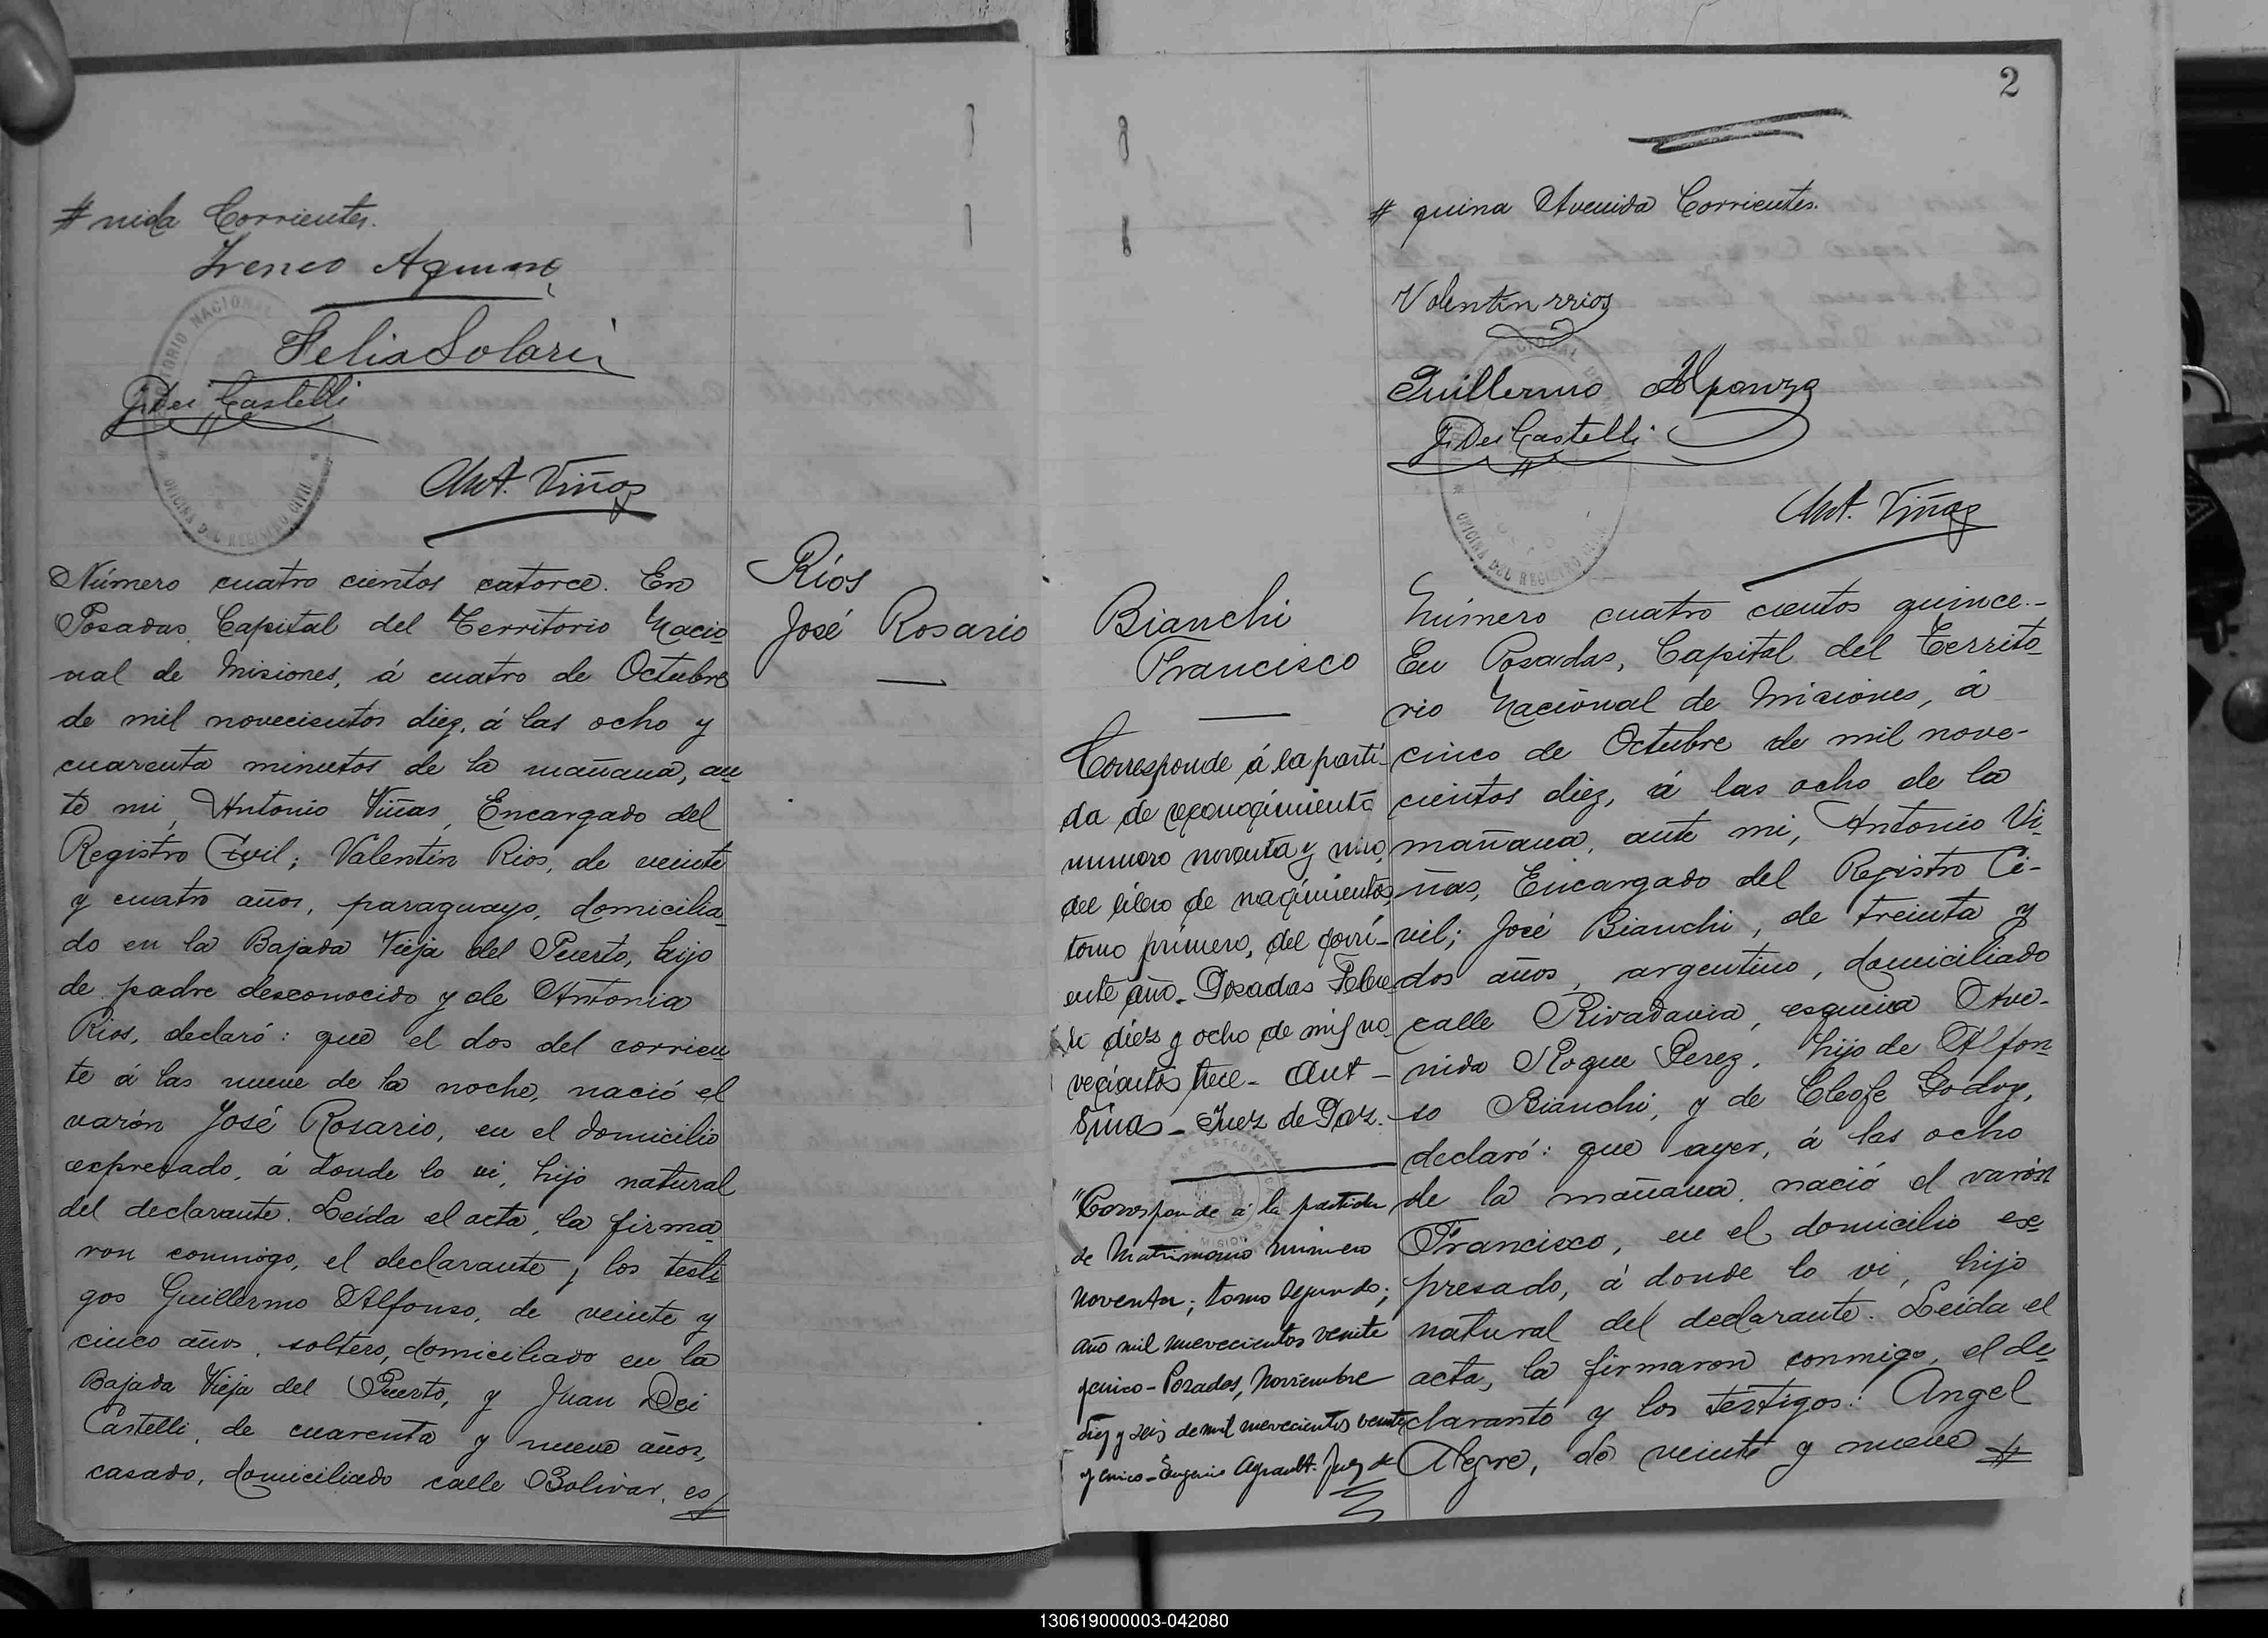 # nida Corrientes.
Ireneo Aquino
Felix Solari
J. Dei Castelli
Ant. Viñas
Número cuatro cientos catorce. En
Posadas, Capital del Territorio Nacio
nal de Misiones, á cuatro de Octubre
de mil novecientos diez, á las ocho y
cuarenta minutos de la mañana, an
te mi, Antonio Viñas, Encargado del
Registro Civil; Valentín Rios, de veinte
y cuatro años, paraguayo, domicilia
do en la Bajada Vieja del Puerto, hijo
de padre desconocido y de Antonia
Rios, declaró: que el dos del corrien
te á las nueve de la noche, nació el
varón José Rosario, en el domicilio
expresado, á donde lo vi, hijo natural
del declarante. Leída el acta, la firma
ron conmigo, el declarante y los testi
gos Guillermo Alfonso, de veinte y
cinco años, soltero, domiciliado en la
Bajada Vieja del Puerto, y Juan Dei
Castelli, de cuarenta y nueve años,
casado, domiciliado calle Bolivar, es
Ríos
José Rosario
2
# quina Avenida Corrientes.
Valentin rrios
Guillermo Alfonzo
J. Dei Castelli
Ant. Viñas
Bianchi
Francisco
Corresponde á la parti-
da de reconocimiento
numero noventa y uno,
del libro de nacimientos,
tomo primero, del corri-
ente año. Posadas Febre
ro diez y ocho de mil no
vecientos trece - Ant -
Viñas - Juez de Paz.
"Corresponde á la partida
de Matrimonio número
noventa; tomo segundo;
año mil novecientos veinte
y cinco - Posadas, Noviembre
diez y seis de mil novecientos veinte
y cinco - Eugenio Juez de
Número cuatro cientos quince.-
En Posadas, Capital del Territo
rio Nacional de Misiones, á
cinco de Octubre de mil nove-
cientos diez, á las ocho de la
mañana, ante mi, Antonio Vi-
ñas, Encargado del Registro Ci-
vil; José Bianchi, de treinta y
dos años, argentino, domiciliado
calle Rivadavia, esquina Ave-
nida Roque Perez, hijo de Alfon
so Bianchi, y de Cleofe Godoy,
declaró: que ayer, á las ocho
de la mañana, nació el varón
Francisco, en el domicilio ex
presado, á donde lo vi, hijo
natural del declarante. Leida el
acta, la firmaron conmigo, el de
clarante y los testigos: Angel
Alegre, de veinte y nueve #
130619000003-042080